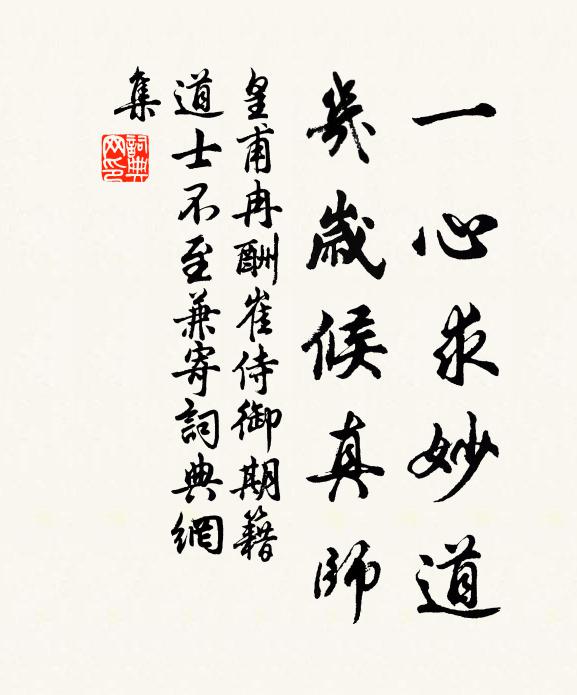 一心求妙道
幾歲候真師
皇甫冉酬崔侍御期籍
道士不至兼寄詞典網
集
詞典網印